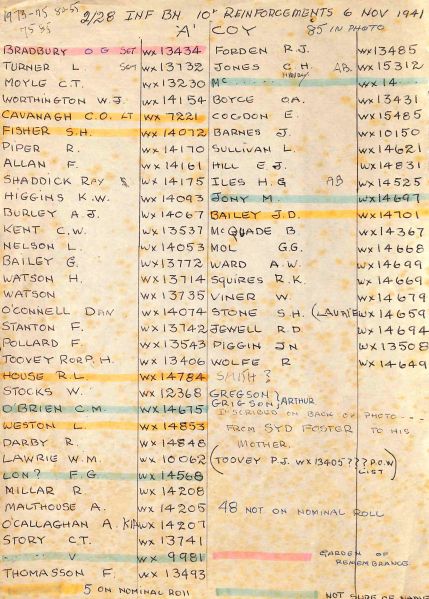 1973-75 82-85
75 85
2/28 INF BN 10th REINFORCEMENTS 6 NOV 1941
'A' COY
85 IN PHOTO
BRADBURY O G SGT WX 13434
TURNER L. SGT WX 13732
MOYLE C.T. WX 13230
WORTHINGTON W.J. WX 14154
CAVANAGH C.O. LT WX 7221
FISHER S.H. WX 14072
PIPER R. WX 14170
ALLAN F. WX 14161
SHADDICK RAY WX 14175
HIGGINS K.W. WX 14093
BURLEY A.J. WX 14067
KENT C.W. WX 13537
NELSON L. WX 14053
BAILEY G. WX 13772
WATSON H. WX 13714
WATSON WX 13735
O'CONNELL DAN WX 14074
STANTON F. WX 13742
POLLARD F. WX 13543
TOOVEY RORP. H. WX 13406
HOUSE R.L. WX 14784
STOCKS W. WX 12368
O'BRIEN C.M. WX 14675
WESTON L. WX 14853
DARBY R. WX 14848
LAWRIE W.M. WX 10062
LON? F.G WX 14568
MILLAR R. WX 14208
MALTHOUSE A. WX 14205
O'CALLAGHAN A. KIA WX 14207
STORY C.T. WX 13741
V WX 9981
THOMASSON F. WX 13493
5 ON NOMINAL ROLL
FORDEN R.J. WX 13485
JONES C.H. AB. WX 15312
Mc WX 14
BOYCE O.A. WX 13431
COGDON E. WX 15485
BARNES J. WX 10150
SULLIVAN L. WX 14621
HILL E.J. WX 14831
ILES H.G AB WX 14525
JONY M. WX 14697
BAILEY J.D. WX 14701
McQUADE B WX 14367
MOL G.G. WX 14668
WARD A.W. WX 14699
SQUIRES R.K. WX 14669
VINER W. WX 14679
STONE S.H. (LAURIE WX 14659
JEWELL R.D WX 14694
PIGGIN JN WX 13508
WOLFE R WX 14649
SMITH?
GREGSON
GRIGSON } ARTHUR
INSCRIBED ON BACK OF PHOTO...
FROM SYD FOSTER TO HIS
MOTHER.
(TOOVEY P.J. WX 13405??? P.O.W
LIST)
48 NOT ON NOMINAL ROLL
GARDEN OF
REMEMBRANCE
NOT SURE OF NAME